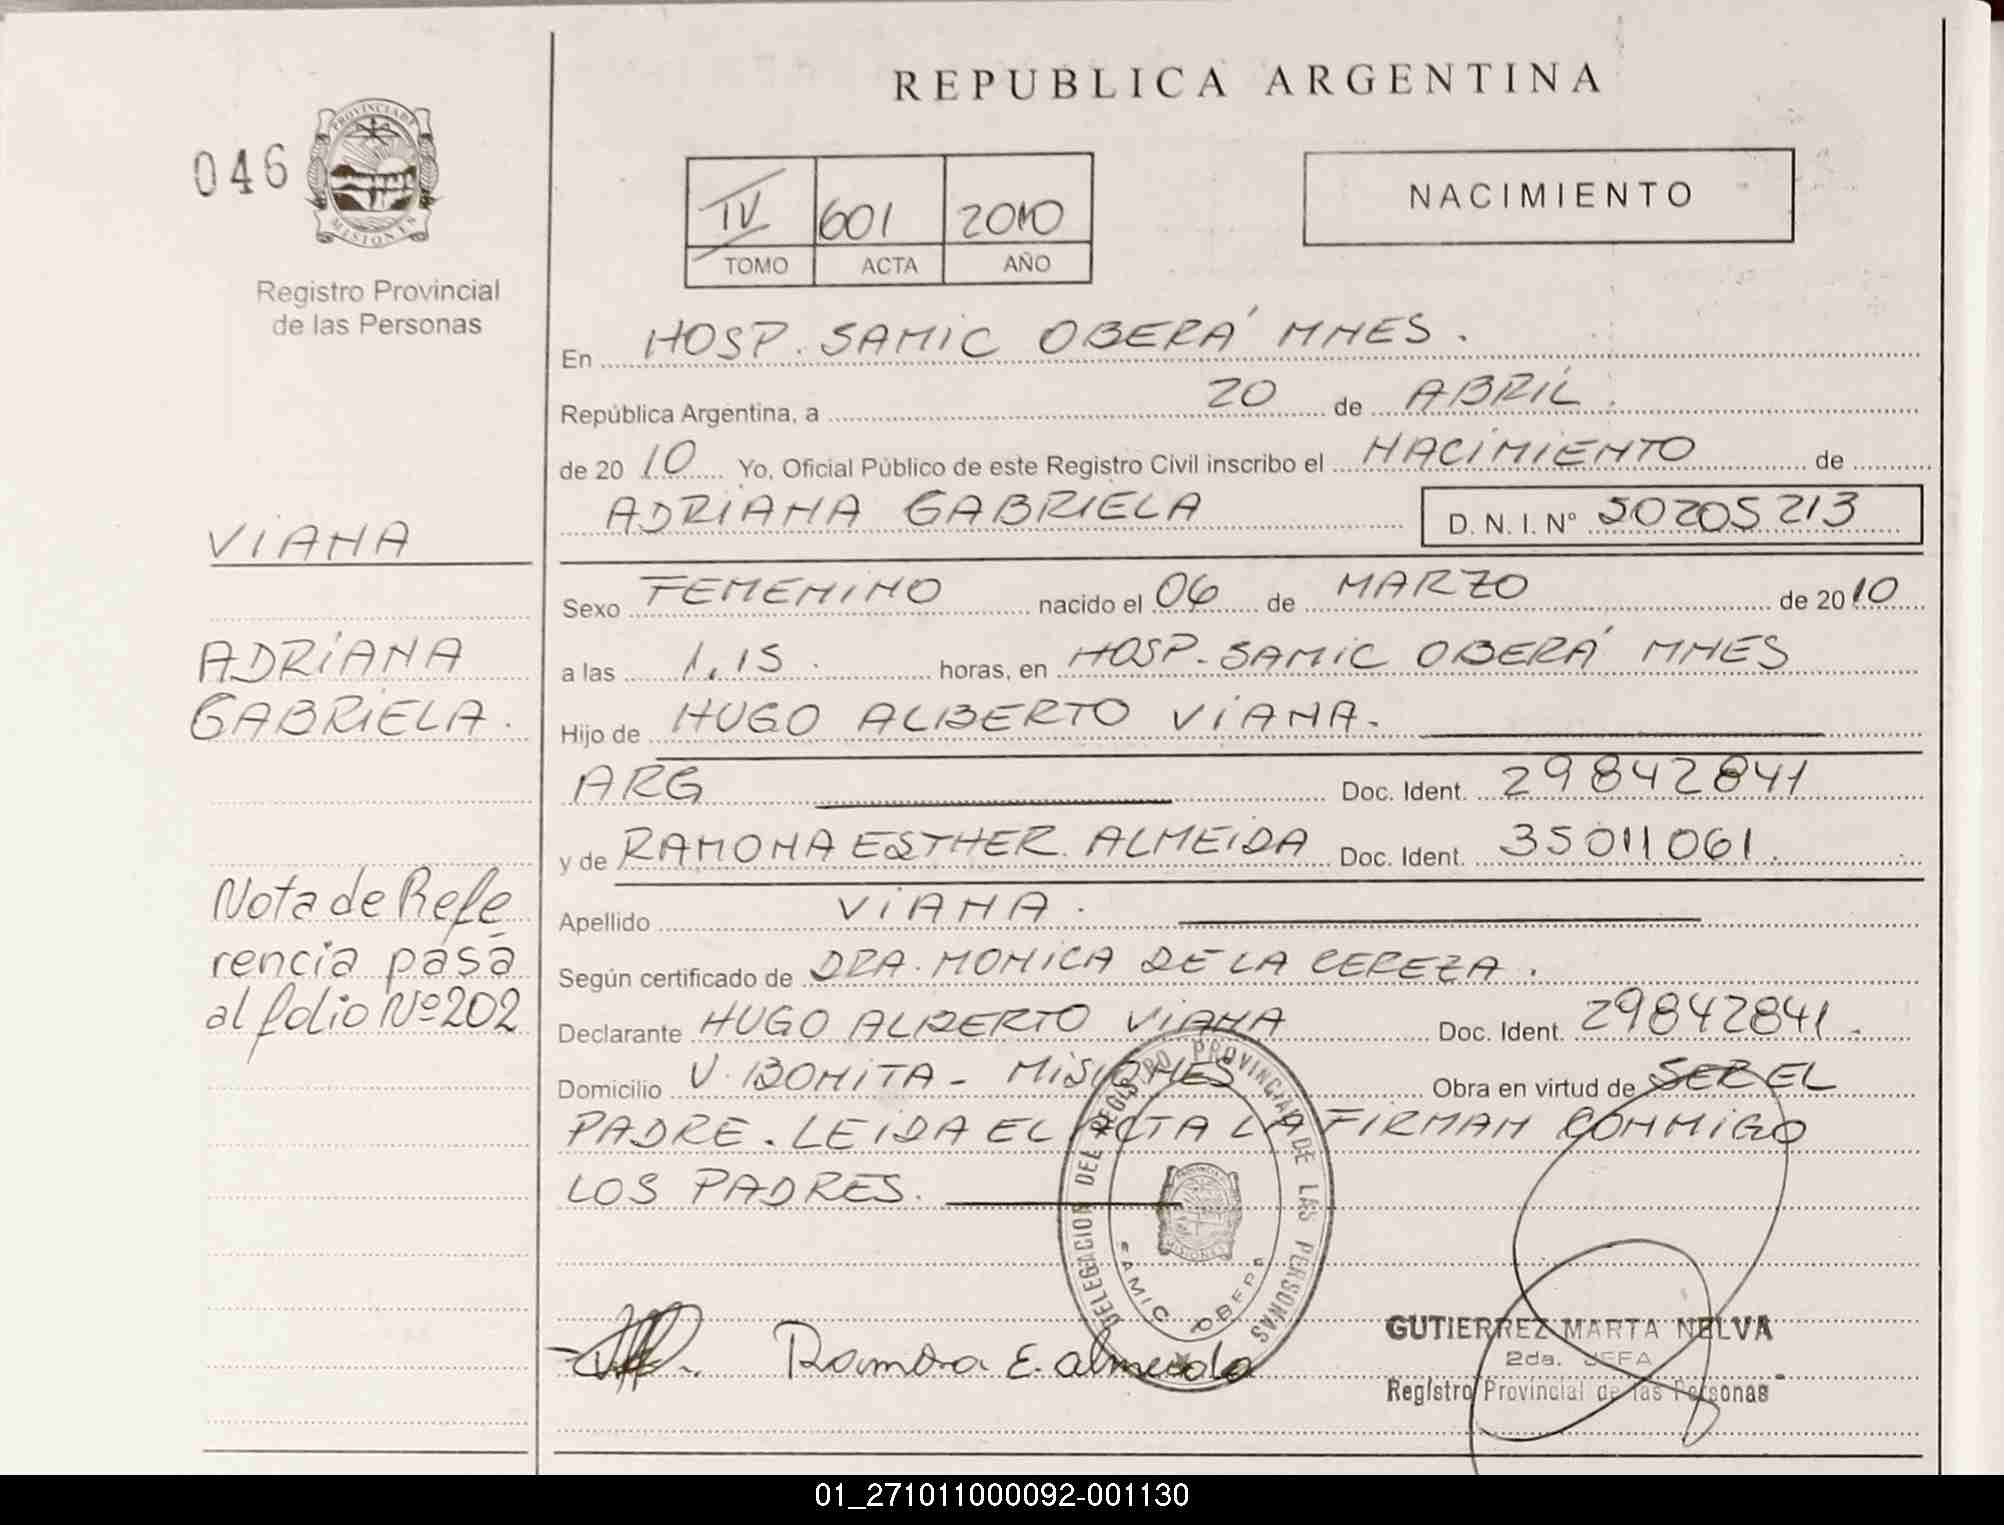 REPUBLICA ARGENTINA
046
PROVINCIA DE
MISIONES
Registro Provincial
de las Personas
IV 601 2010
TOMO ACTA AÑO
NACIMIENTO
En HOSP. SAMIC OBERÁ MNES.
República Argentina, a 20 de ABRIL.
de 20 10 Yo, Oficial Público de este Registro Civil inscribo el NACIMIENTO de
ADRIANA GABRIELA D. N. I. Nº 50205213
VIANA
Sexo FEMENINO nacido el 06 de MARZO de 2010
ADRIANA
GABRIELA.
a las 1,15. horas, en HOSP. SAMIC OBERÁ MNES
Hijo de HUGO ALBERTO VIANA.
ARG Doc. Ident. 29842841
y de RAMONA ESTHER ALMEIDA Doc. Ident. 35011061.
Nota de Refe
rencia pasa
al folio Nº 202
Apellido VIANA.
Según certificado de DRA. MONICA DE LA CEREZA.
Declarante HUGO ALBERTO VIANA Doc. Ident. 29842841.
Domicilio V. BONITA - MISIONES Obra en virtud de SER EL
PADRE. LEIDA EL ACTA LA FIRMAN CONMIGO
LOS PADRES.
DELEGACION DEL REGISTRO PROVINCIAL DE LAS PERSONAS
SAMIC OBERA
MISIONES
Ramona E. almeida
GUTIERREZ MARTA NELVA
2da. JEFA
Registro Provincial de las Personas
01_271011000092-001130